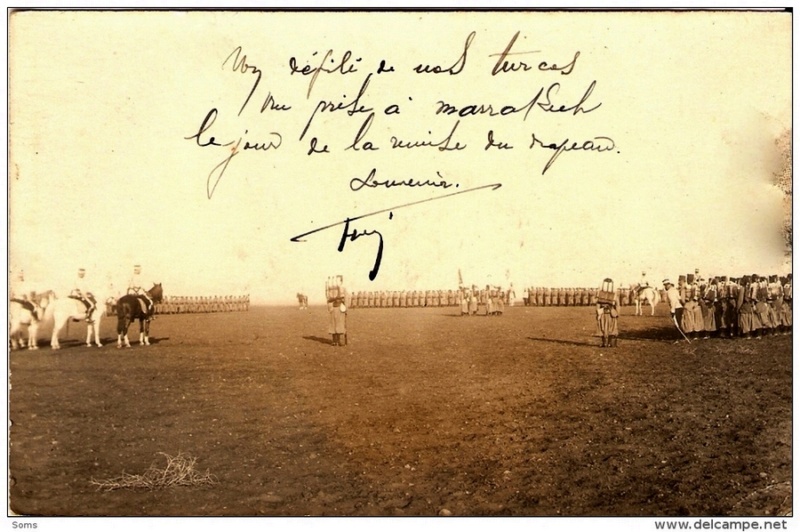 Un défilé de nos turcos
Vue prise à marrakech
le jour de la remise du drapeau.
Souvenir.
Soms
www.delcampe.net